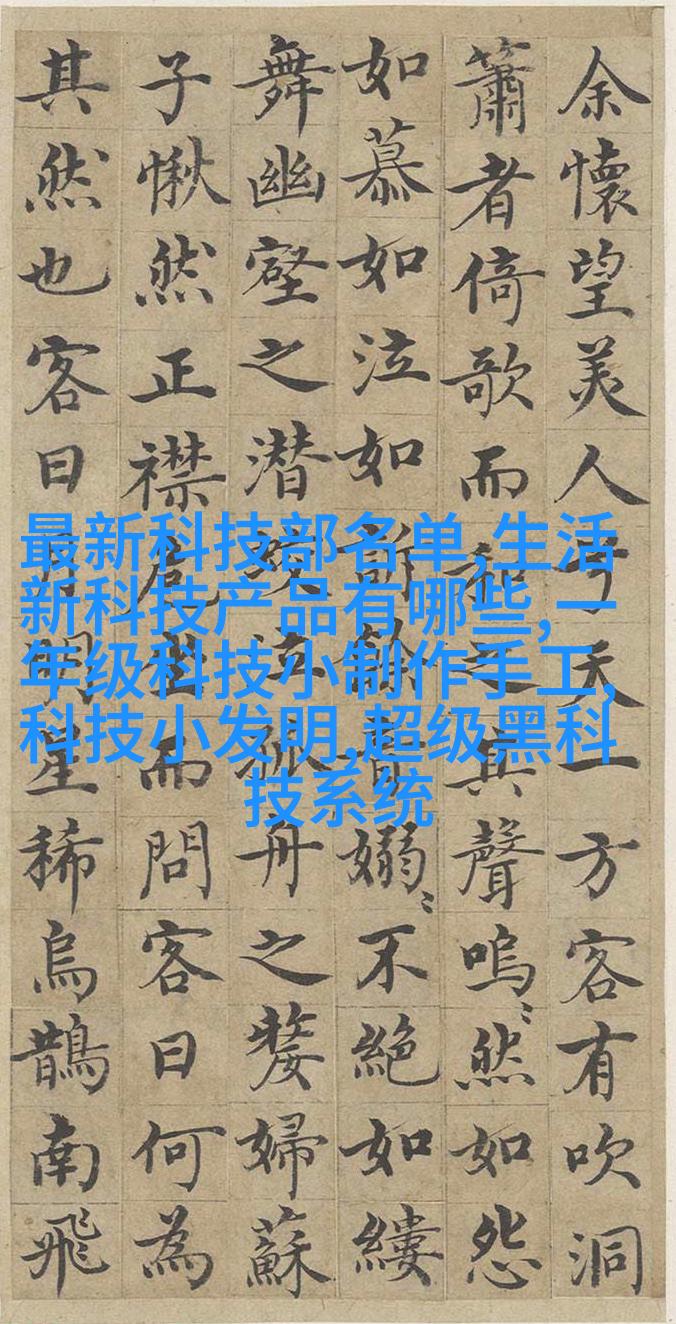 余懷望美人兮天一方客有吹洞
簫者倚歌而和之其聲嗚〻然如怨
如慕如泣如訴餘音嫋〻不絕如縷
舞幽壑之潛蛟泣孤舟之嫠婦蘇
子愀然正襟危坐而問客曰何為
其然也客曰月明星稀烏鵲南飛
最新科技部名单,生活
新科技产品有哪些,一
年级科技小制作手工,
科技小发明,超级黑科
技系统